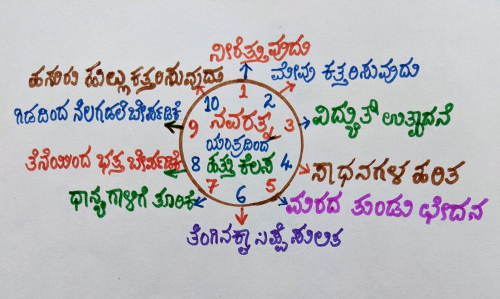 ನೀರೆತ್ತುವುದು
ಹಸುರು ಹುಲ್ಲು ಕತ್ತರಿಸುವುದು
ಮೇವು ಕತ್ತರಿಸುವುದು
1
10 2
ಗಿಡದಿಂದ ನೆಲಗಡಲೆ ಬೇರ್ಪಡಿಕೆ
9 ನವರತ್ನ 3
ವಿದ್ಯುತ್ ಉತ್ಪಾದನೆ
ಯಂತ್ರದಿಂದ
ತೆನೆಯಿಂದ ಭತ್ತ ಬೇರ್ಪಡಿಕೆ
8 ಹತ್ತು ಕೆಲಸ 4
ಸಾಧನಗಳ ಹರಿತ
7 5
ಧಾನ್ಯ ಗಾಳಿಗೆ ತೂರಿಕೆ
6
ಮರದ ತುಂಡು ಛೇದನ
ತೆಂಗಿನಕಾಯಿ ಸಿಪ್ಪೆ ಸುಲಿತ